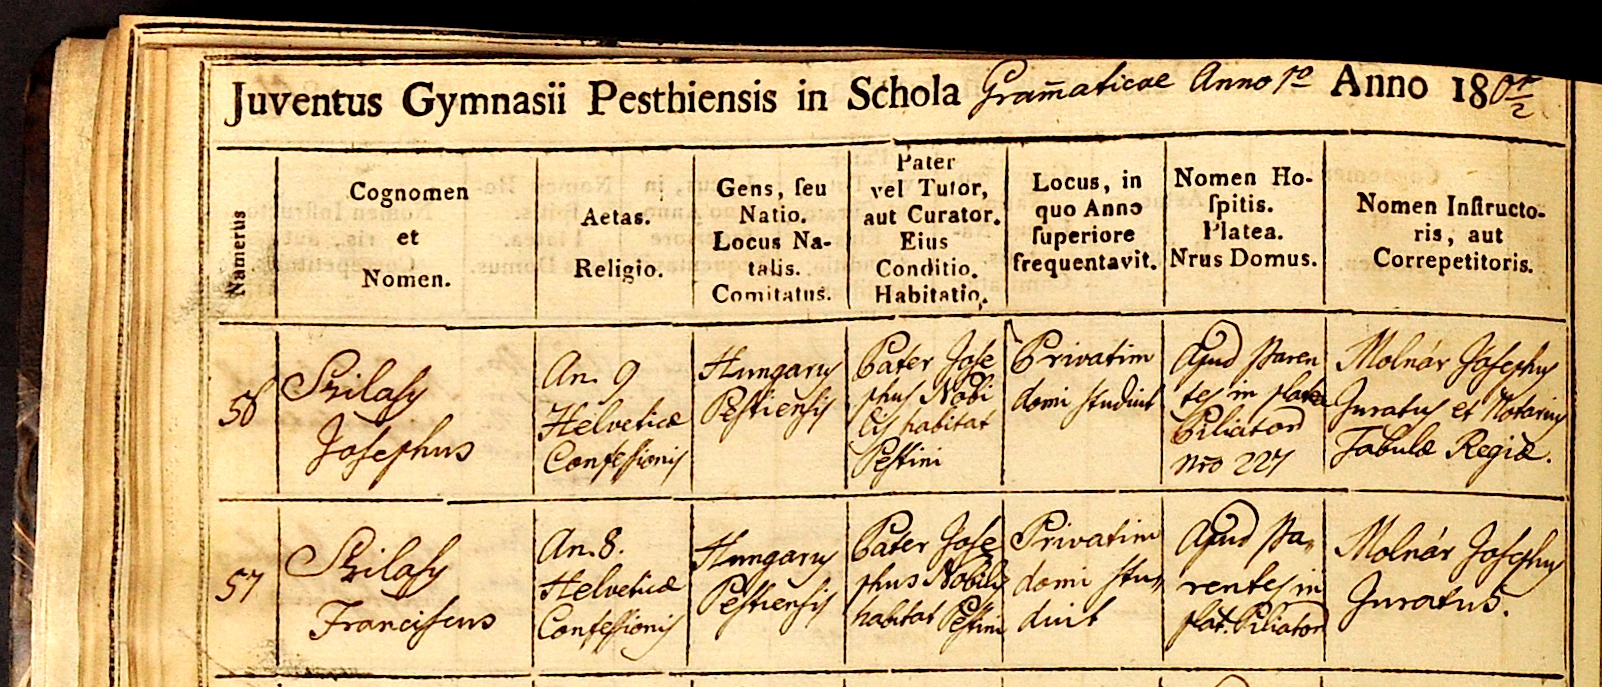 Juventus Gymnasii Pesthiensis in Schola Gram̄aticae Anno 1o Anno 180½
Namerus
Cognomen
et
Nomen.
Aetas.
Religio.
Gens, ſeu
Natio.
Locus Na-
talis.
Comitatus.
Pater
vel Tutor,
aut Curator.
Eius
Conditio.
Habitatio.
Locus, in
quo Anno
ſuperiore
frequentavit.
Nomen Ho-
ſpitis.
Platea.
Nrus Domus.
Nomen Inſtructo-
ris, aut
Correpetitoris.
56
Szilasy
Josephus
An. 9
Helveticæ
Confessionis
Hungarus
Pestiensis
Pater Jose
phus Nobi
lis habitat
Pestini
Privatim
domi studuit
Apud Paren
tes in platea
Piliator
Nro 227
Molnár Josephus
Juratus et Notarius
Tabulæ Regiæ.
57
Szilasy
Franciscus
An. 8.
Helveticæ
Confessionis
Hungarus
Pestiensis
Pater Jose
phus Nobilis
habitat Pestini
Privatim
domi stu„
duit
Apud Pa„
rentes in
plat. Piliator
Molnár Josephus
Juratus.